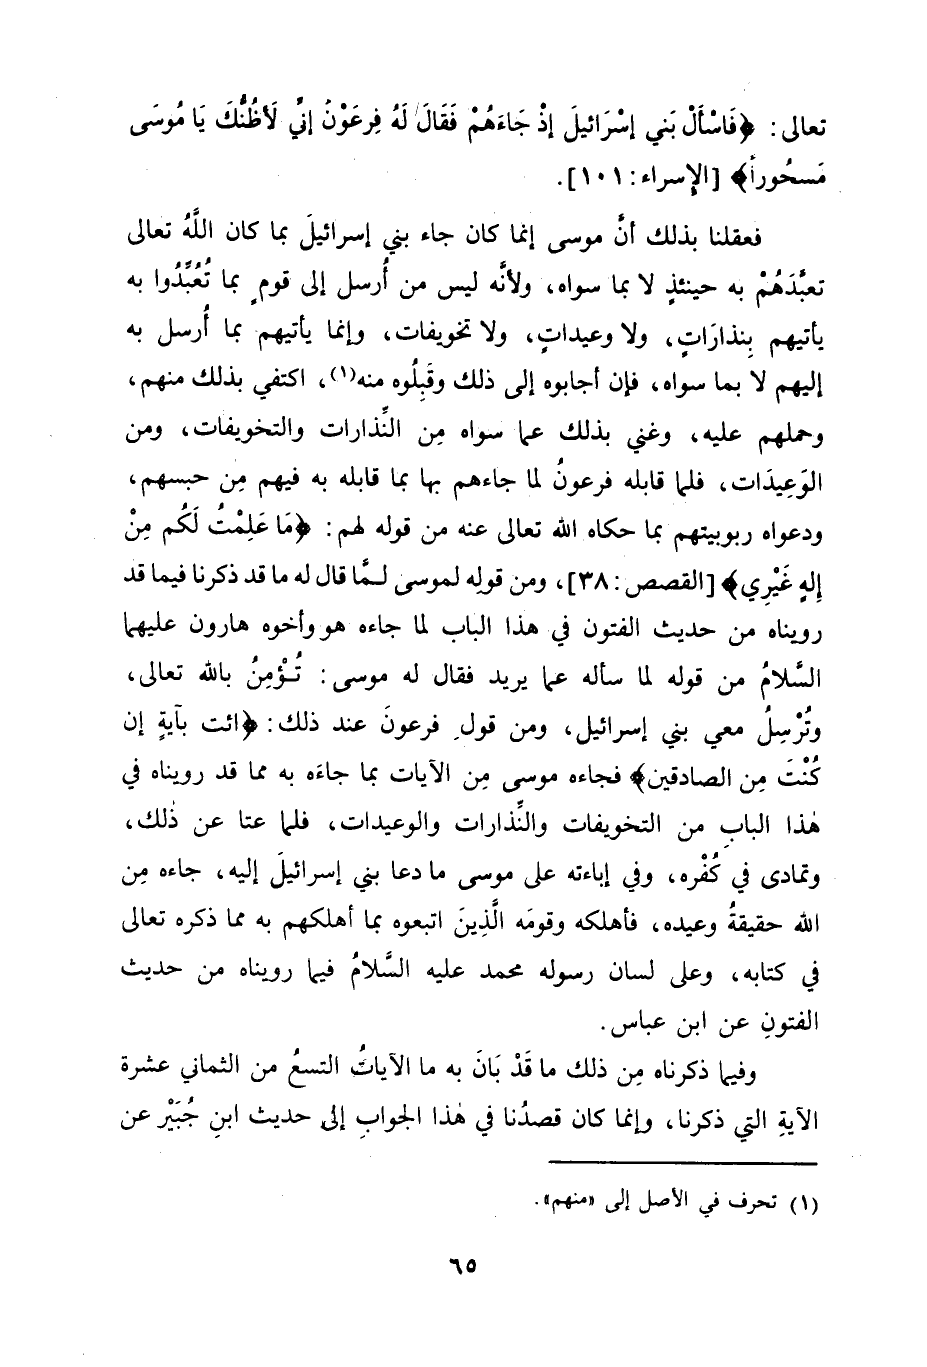 تعالى: ﴿فَاسْأَلْ بَني إسْرَائيلَ إذْ جَاءَهُمْ فَقَالَ لَهُ فِرعَوْنُ إنِّي لَأَظُنُّكَ يَا مُوسَى
مَسحُوراً﴾ [الإسراء: ١٠١].
فعقلنا بذلك أنَّ موسى إنما كان جاء بني إسرائيلَ بما كان اللَّهُ تعالى
تعبَّدَهُمْ به حينئذٍ لا بما سواه، ولأنَّه ليس من أُرسل إلى قومٍ بما تُعُبِّدُوا به
يأتيهم بِنذارَاتٍ، ولا وعيداتٍ، ولا تخويفات، وإنما يأتيهم بما أُرسل به
إليهم لا بما سواه، فإن أجابوه إلى ذلك وقَبِلُوه منه(١)، اكتفي بذلك منهم،
وحملهم عليه، وغني بذلك عما سواه مِن النِّذارات والتخويفات، ومن
الوَعِيدَات، فلما قابله فرعونُ لما جاءهم بها بما قابله به فيهم مِن حبسهم،
ودعواه ربوبيتهم بما حكاه الله تعالى عنه من قوله لهم: ﴿مَا عَلِمْتُ لَكُم مِنْ
إلهٍ غَيْرِي﴾ [القصص: ٣٨]، ومن قولِه لموسى لـمَّا قال له ما قد ذكرنا فيما قد
رويناه من حديث الفتون في هذا الباب لما جاءه هو وأخوه هارون عليهما
السَّلامُ من قوله لما سأله عما يريد فقال له موسى: تُؤْمِنُ بالله تعالى،
وتُرْسِلُ معي بني إسرائيل، ومن قولِ فرعونَ عند ذلك: ﴿ائت بآيةٍ إن
كُنْتَ مِن الصادقين﴾ فجاءه موسى مِن الآيات بما جاءَه به مما قد رويناه في
هٰذا البابِ من التخويفات والنِّذارات والوعيدات، فلما عتا عن ذٰلك،
وتمادى في كُفْره، وفي إباءته على موسى ما دعا بني إسرائيلَ إليه، جاءه مِن
الله حقيقةُ وعيده، فأهلكه وقومَه الَّذِينَ اتبعوه بما أهلكهم به مما ذكره تعالى
في كتابه، وعلى لسان رسوله محمد عليه السَّلامُ فيما رويناه من حديث
الفتونِ عن ابن عباس.
وفيما ذكرناه مِن ذلك ما قَدْ بَانَ به ما الآياتُ التسعُ من الثماني عشرة
الآيةِ التي ذكرنا، وإنما كان قصدُنا في هٰذا الجوابِ إلى حديث ابنِ جُبَيْر عن
(١) تحرف في الأصل إلى «منهم».
٦٥